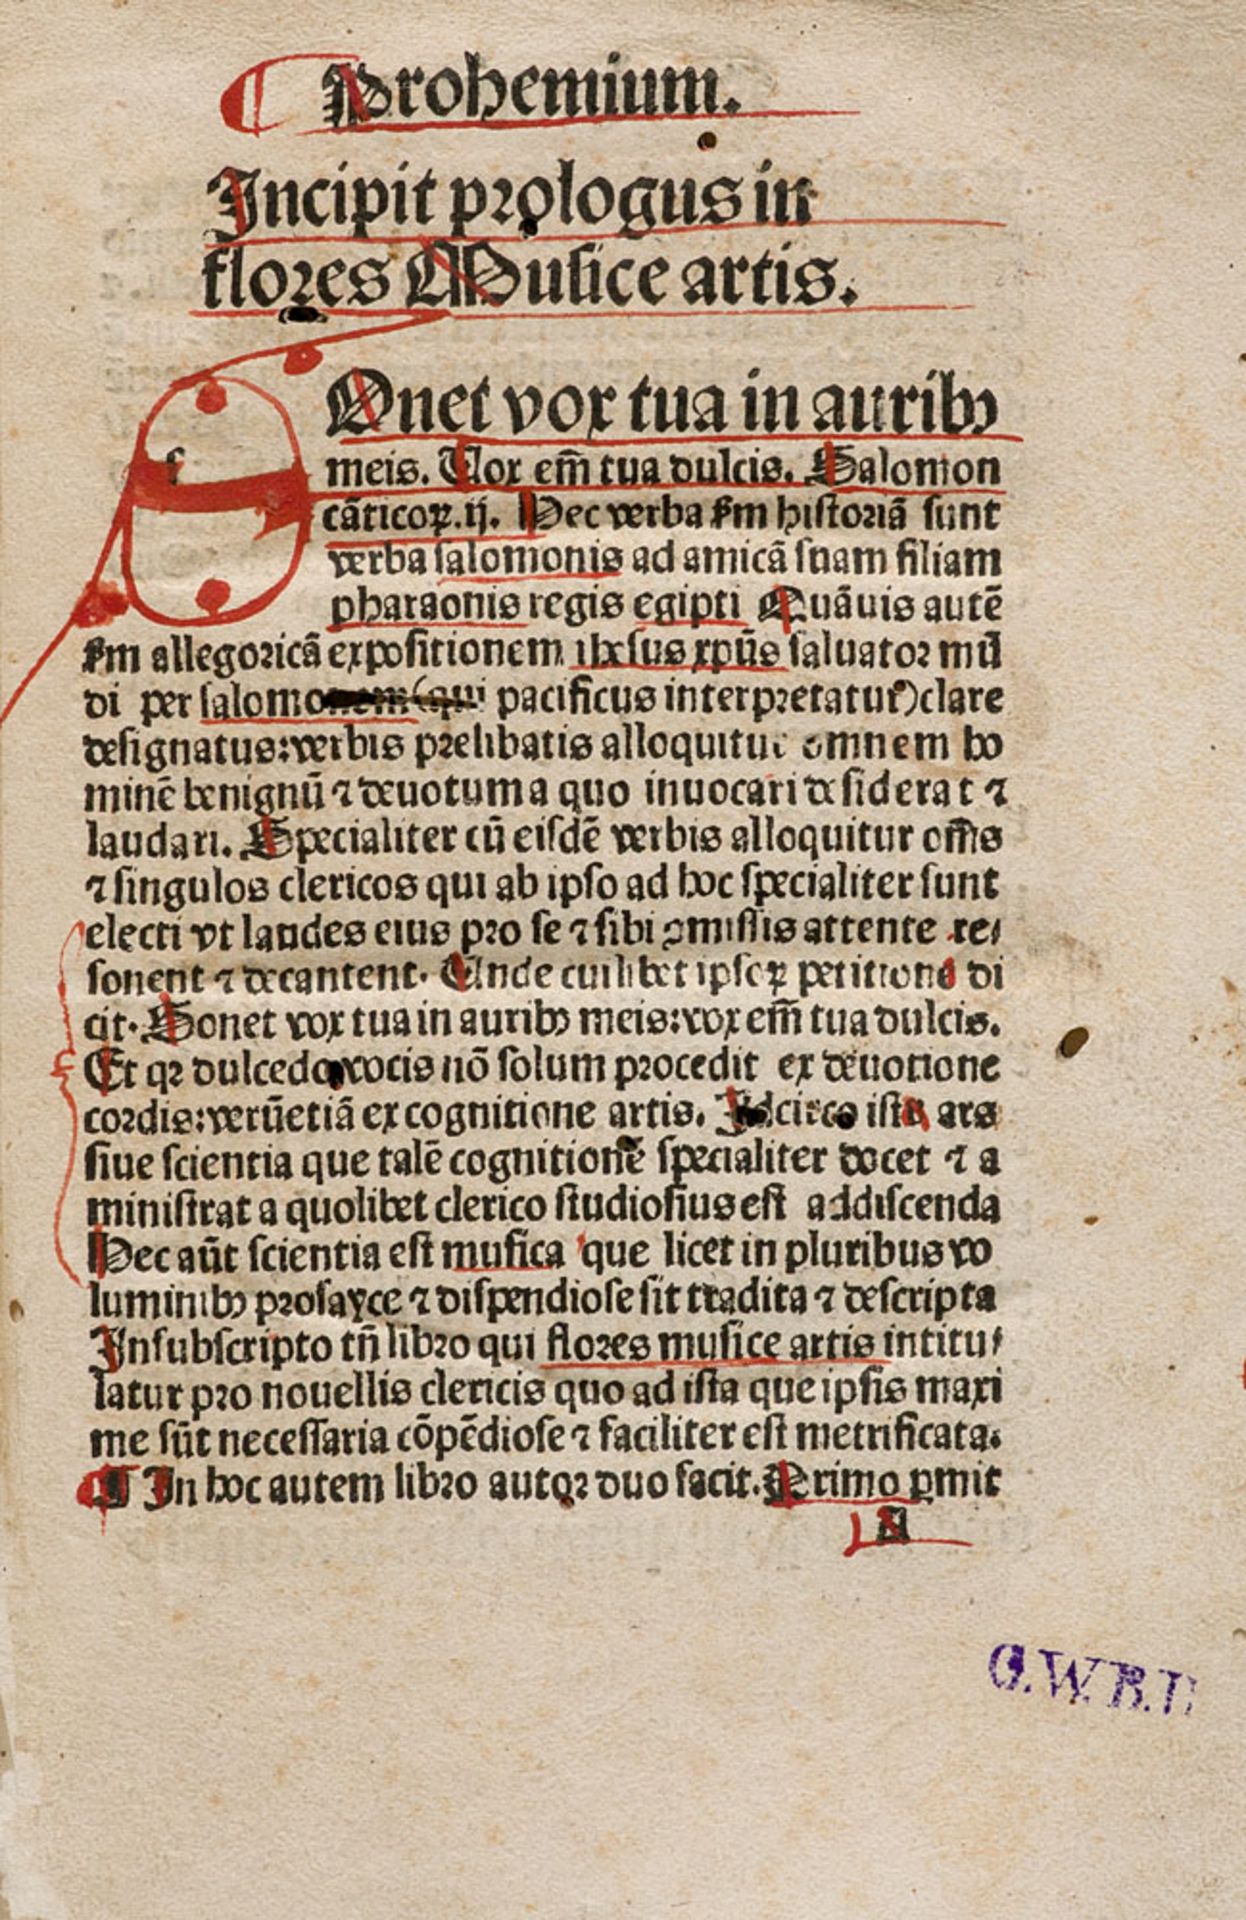 Prohemium.
Incipit prologus in
flores Musice artis.
SOnet vox tua in auribꝰ
meis. Vox em̃ tua dulcis. Salomon
cãticoꝝ.ij. Hec verba ẜm historiã sunt
verba salomonis ad amicã suam filiam
pharaonis regis egipti Quãuis autẽ
ẜm allegoricã expositionem ihesus xpũs saluator mũ
di per salomonem (qui pacificus interpretatur) clare
designatus: verbis prelibatis alloquitur omnem ho
minẽ benignũ ⁊ deuotum a quo inuocari desiderat ⁊
laudari. Specialiter cũ eisdẽ verbis alloquitur om̃s
⁊ singulos clericos qui ab ipso ad hoc specialiter sunt
electi vt laudes eius pro se ⁊ sibi ꝯmissis attente re⸗
sonent ⁊ decantent. Unde cuilibet ipsoꝝ petitione di
cit. Sonet vox tua in auribꝰ meis: vox em̃ tua dulcis.
Et qꝛ dulcedo vocis nõ solum procedit ex deuotione
cordis: verũetiã ex cognitione artis. Idcirco ista ars
siue scientia que talẽ cognitionẽ specialiter docet ⁊ a
ministrat a quolibet clerico studiosius est addiscenda
Hec aũt scientia est musica que licet in pluribus vo
luminibꝰ prosayce ⁊ dispendiose sit tradita ⁊ descripta
In subscripto tñ libro qui flores musice artis intitu⸗
latur pro nouellis clericis quo ad ista que ipsis maxi
me sũt necessaria cõpẽdiose ⁊ faciliter est metrificata.
¶ In hoc autem libro autor duo facit. Primo p̃mit
G.W.B.